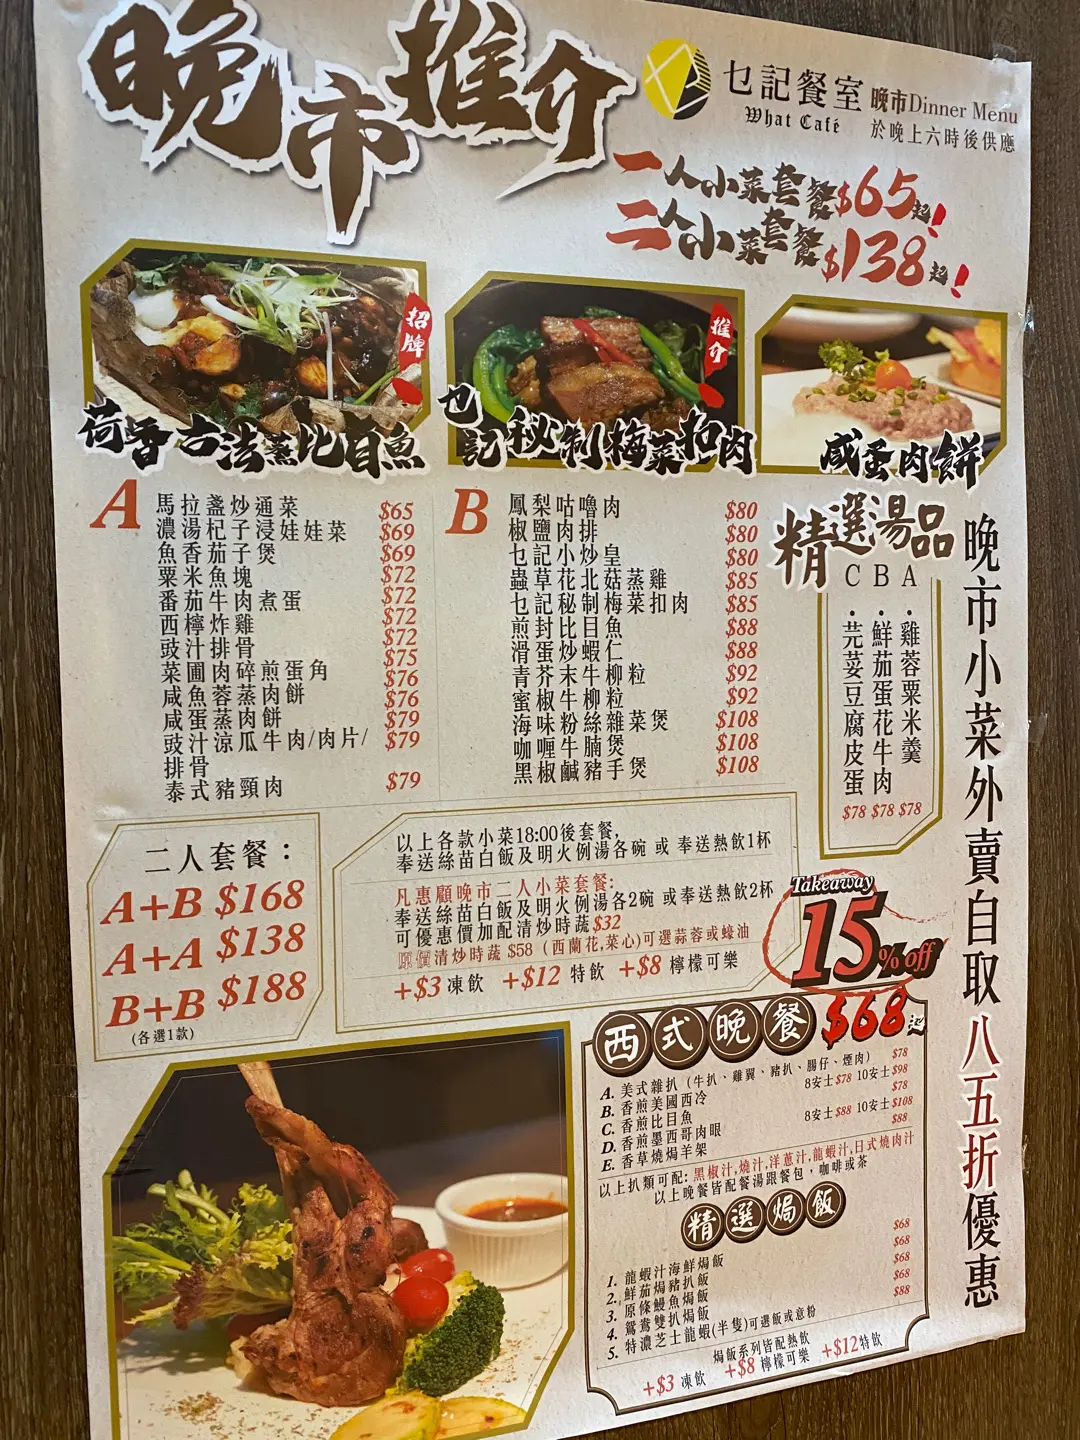 晚市推介
乜記餐室
What Café
晚市Dinner Menu
於晚上六時後供應
一人小菜套餐$65起!
二人小菜套餐$138起!
招牌
推介
荷香古法蒸比目魚
乜記秘制梅菜扣肉
咸蛋肉餅
A
馬拉盞炒通菜 $65
濃湯杞子浸娃娃菜 $69
魚香茄子煲 $69
粟米魚塊 $72
番茄牛肉煮蛋 $72
西檸炸雞 $72
豉汁排骨 $72
菜圃肉碎煎蛋角 $75
咸魚蓉蒸肉餅 $76
咸蛋蒸肉餅 $76
豉汁涼瓜牛肉/肉片/ $79
排骨 $79
泰式豬頸肉 $79
B
鳳梨咕嚕肉 $80
椒鹽肉排 $80
乜記小炒皇 $80
蟲草花北菇蒸雞 $85
乜記秘制梅菜扣肉 $85
煎封比目魚 $88
滑蛋炒蝦仁 $88
青芥末牛柳粒 $92
蜜椒牛柳粒 $92
海味粉絲雜菜煲 $108
咖喱牛腩煲 $108
黑椒鹹豬手煲 $108
精選湯品
C B A
·雞蓉粟米羹
·鮮茄蛋花牛肉
·芫荽豆腐皮蛋
$78 $78 $78
晚市小菜外賣自取八五折優惠
二人套餐：
A+B $168
A+A $138
B+B $188
(各選1款)
以上各款小菜18:00後套餐,
奉送絲苗白飯及明火例湯各碗 或 奉送熱飲1杯
凡惠顧晚市二人小菜套餐:
奉送絲苗白飯及明火例湯各2碗 或奉送熱飲2杯
可優惠價加配清炒時蔬$32
原價清炒時蔬 $58 (西蘭花,菜心)可選蒜蓉或蠔油
+$3 凍飲 +$12 特飲 +$8 檸檬可樂
Takeaway
15% off
西式晚餐 $68起
A. 美式雜扒 (牛扒、雞翼、豬扒、腸仔、煙肉) $78
B. 香煎美國西冷 8安士$78 10安士$98
C. 香煎比目魚 $78
D. 香煎墨西哥肉眼 8安士$88 10安士$108
E. 香草燒焗羊架 $88
以上扒類可配: 黑椒汁,燒汁,洋蔥汁,龍蝦汁,日式燒肉汁
以上晚餐皆配餐湯跟餐包，咖啡或茶
精選焗飯
1. 龍蝦汁海鮮焗飯 $68
2. 鮮茄焗豬扒飯 $68
3. 原條鰻魚焗飯 $68
4. 鴛鴦雙扒焗飯 $68
5. 特濃芝士龍蝦(半隻)可選飯或意粉 $88
焗飯系列皆配熱飲
+$3 凍飲 +$8 檸檬可樂 +$12特飲